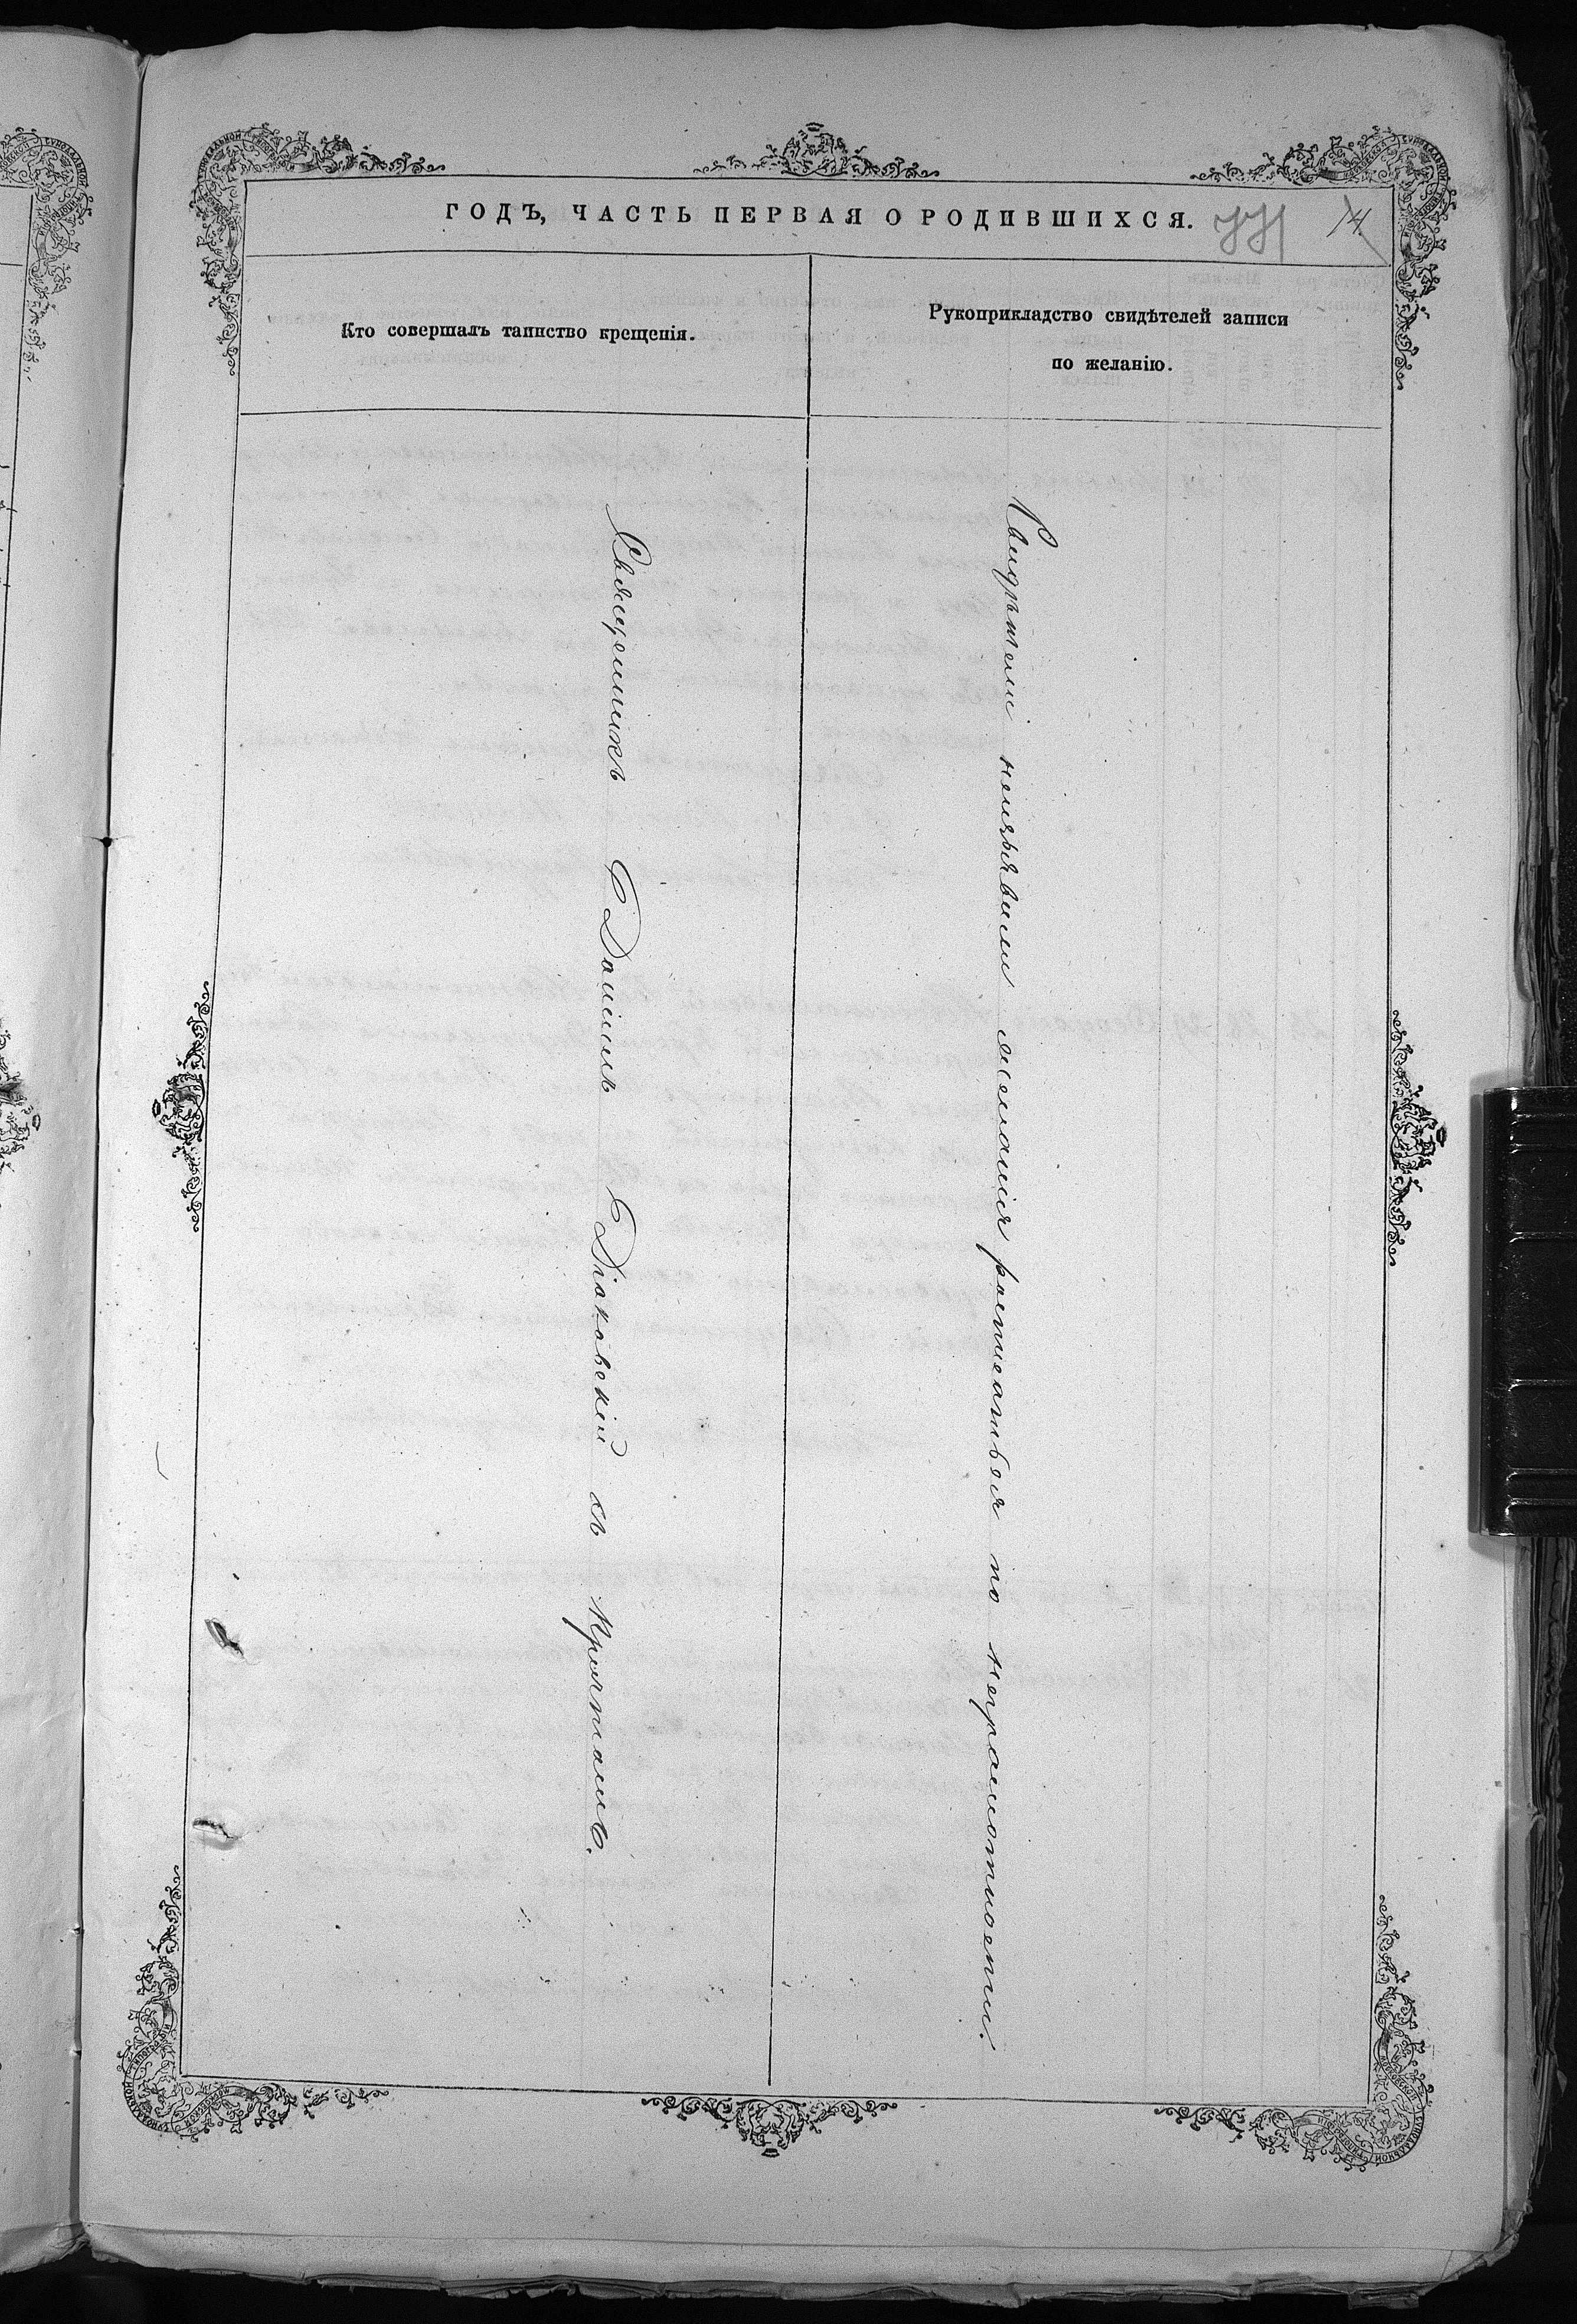 ГОДЪ, ЧАСТЬ ПЕРВАЯ О РОДИВШИХСЯ.
14
Кто совершалъ таинство крещенія.
Рукоприкладство свидѣтелей записи
по желанію.
Священникъ Даніилъ Діаковскій съ причтомъ.
Свидѣтели неизъявили желанія росписаться по неграмотности.